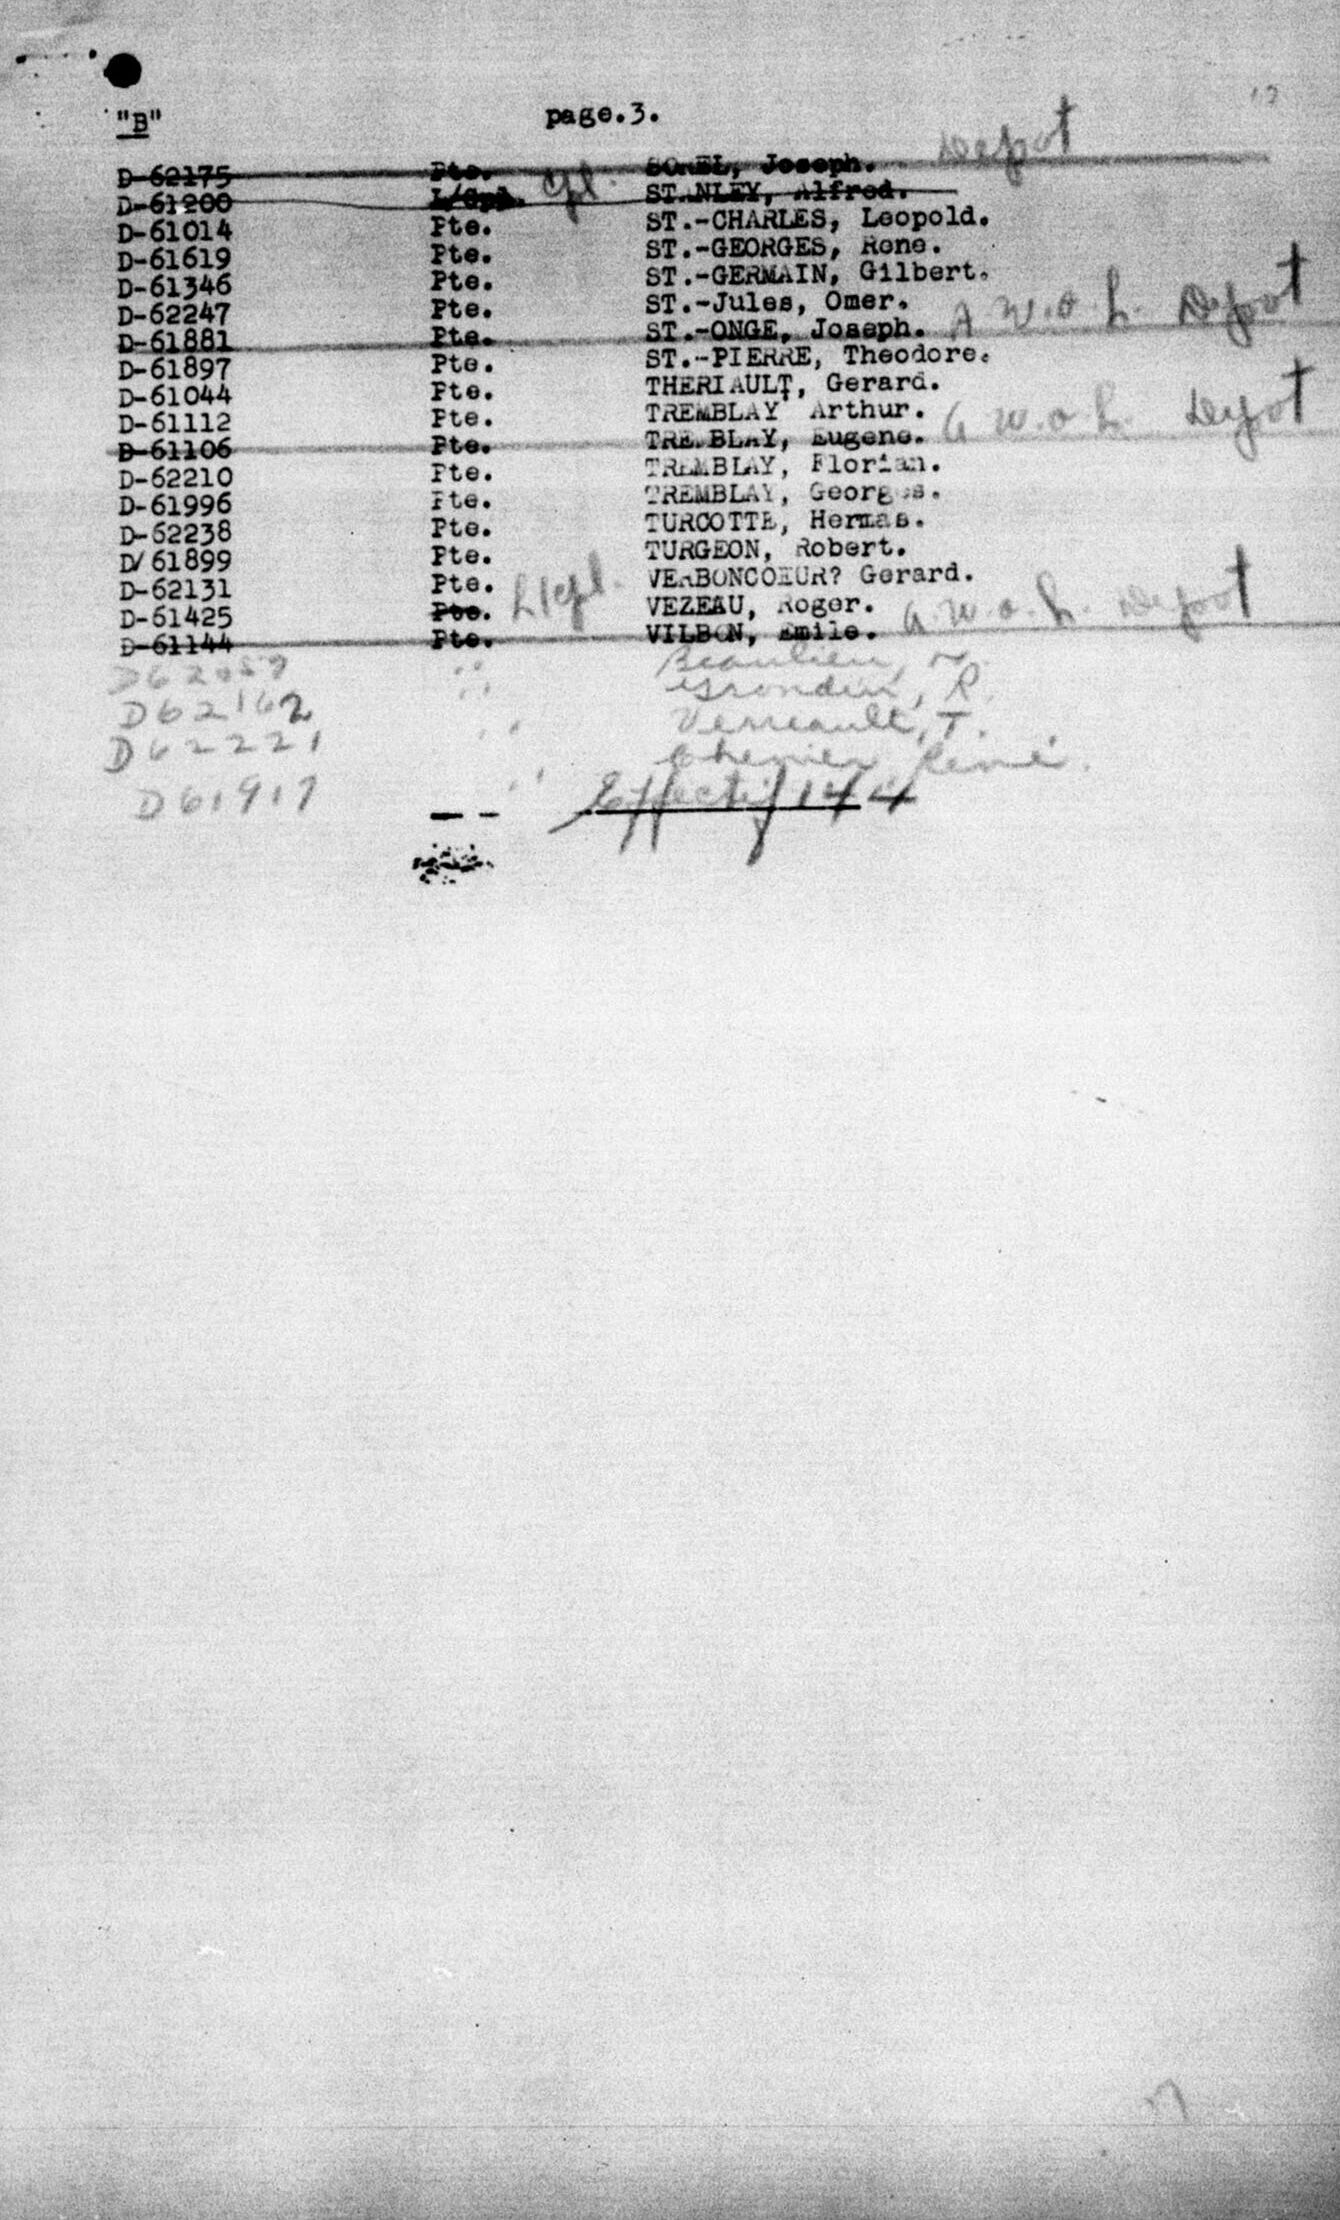 "B" page.3.
D-62175 Pte. SOREL, Joseph. Depot
D-61200 L/Cpl. Cpl. STANLEY, Alfred.
D-61014 Pte. ST.-CHARLES, Leopold.
D-61619 Pte. ST.-GEORGES, Rene.
D-61346 Pte. ST.-GERMAIN, Gilbert.
D-62247 Pte. ST.-Jules, Omer.
D-61881 Pte. ST.-ONGE, Joseph. A.W.O.L. Depot
D-61897 Pte. ST.-PIERRE, Theodore.
D-61044 Pte. THERIAULT, Gerard.
D-61112 Pte. TREMBLAY Arthur.
D-61106 Pte. TREMBLAY, Eugene. a w.o.L. Depot
D-62210 Pte. TREMBLAY, Florian.
D-61996 Pte. TREMBLAY, Georges.
D-62238 Pte. TURCOTTE, Hermas.
D/61899 Pte. TURGEON, Robert.
D-62131 Pte. VERBONCOEUR? Gerard.
D-61425 Pte. L/Cpl. VEZEAU, Roger.
D-61144 Pte. VILBON, Emile. a.w.o.L. Depot
D62059 " Beaulieu,
D62162 " Grondin, R.
D62221 " Verreault, T.
D61917 " Chenier René.
Effectif 144